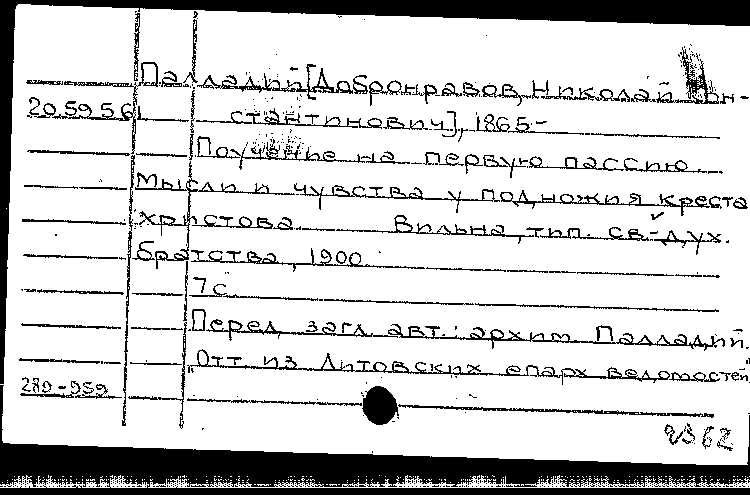 Палладий [Добронравов, Николай Кон-
20.59.561 стантинович], 1865-
Поучение на первую пассию.
Мысли и чувства у подножия креста
христова. Вильна, тип. св.-дух.
братства, 1900.
7 с.
Перед загл. авт.: архим. Палладий.
"Отт. из Литовских епарх. ведомостей"
289-959
2362